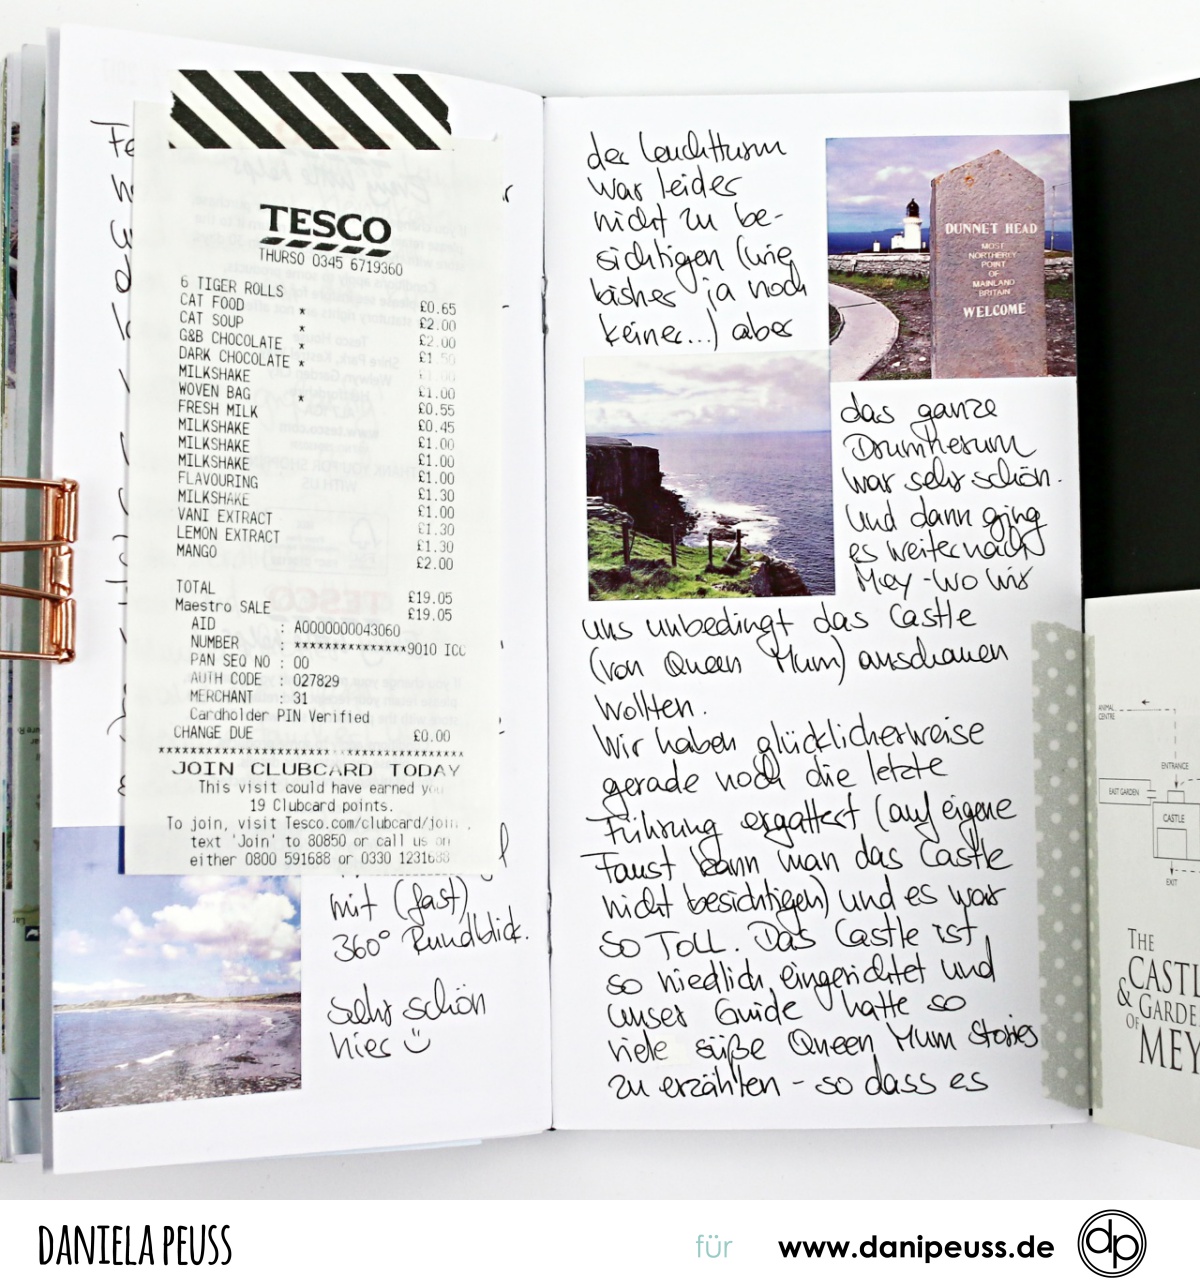 Fe
TESCO
THURSO 0345 6719360
6 TIGER ROLLS £0.65
CAT FOOD * £2.00
CAT SOUP * £2.00
G&B CHOCOLATE * £1.50
DARK CHOCOLATE * £1.00
MILKSHAKE £1.00
WOVEN BAG * £0.55
FRESH MILK £0.45
MILKSHAKE £1.00
MILKSHAKE £1.00
MILKSHAKE £1.00
FLAVOURING £1.30
MILKSHAKE £1.00
VANI EXTRACT £1.30
LEMON EXTRACT £1.30
MANGO £2.00
TOTAL £19.05
Maestro SALE £19.05
AID : A0000000043060
NUMBER : ***************9010 ICC
PAN SEQ NO : 00
AUTH CODE : 027829
MERCHANT : 31
Cardholder PIN Verified
CHANGE DUE £0.00
JOIN CLUBCARD TODAY
This visit could have earned you
19 Clubcard points.
To join, visit Tesco.com/clubcard/join,
text 'Join' to 80850 or call us on
either 0800 591688 or 0330 1231688
mit (fast)
360° Rundblick.
Sehr schön
hier
der Leuchtturm
war leider
nicht zu be-
sichtigen (wie
bisher ja noch
keiner...) aber
DUNNET HEAD
MOST
NORTHERLY
POINT
OF
MAINLAND
BRITAIN
WELCOME
das ganze
Drumherum
war sehr schön.
Und dann ging
es weiter nach
Mey - wo wir
uns unbedingt das Castle
(von Queen Mum) anschauen
wollten.
Wir haben glücklicherweise
gerade noch die letzte
Führung ergattert (auf eigene
Faust kann man das Castle
nicht besichtigen) und es war
so TOLL. Das Castle ist
so niedlich eingerichtet und
unser Guide hatte so
viele süße Queen Mum Stories
zu erzählen - so dass es
ANIMAL
CENTRE
ENTRANCE
EAST GARDEN
CASTLE
EXIT
THE
CASTL
& GARDE
OF
MEY
DANIELA PEUSS
für www.danipeuss.de
dp